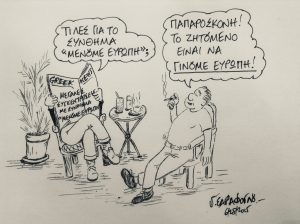 ΤΙ ΛΕΣ ΓΙΑ ΤΟ
ΣΥΝΘΗΜΑ
"ΜΕΝΟΜΕ ΕΥΡΩΠΗ";
ΠΑΠΑΡΟΣΚΟΝΗ!
ΤΟ ΖΗΤΟΜΕΝΟ
ΕΙΝΑΙ ΝΑ
ΓΙΝΟΜΕ ΕΥΡΩΠΗ!
GREEK
NEWS
ΜΕΓΑΛΕΣ
ΣΥΓΚΕΝΤΡΩΣΕΙΣ
ΜΕ ΣΥΝΘΗΜΑ
"ΜΕΝΟΜΕ ΕΥΡΩΠΗ"